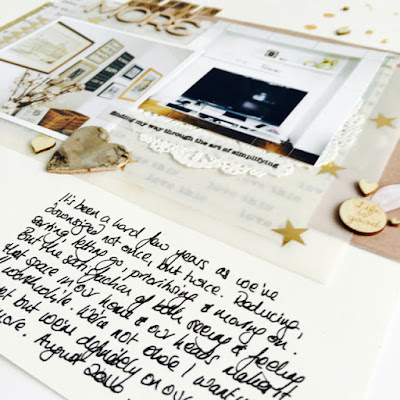 MORE
finding my way through the art of simplifying
love this
love this
love this
love
It's been a hard few years as we've
downsized not once, but twice. Reducing,
sorting, letting go, prioritising & moving on.
But the satisfaction of both seeing & feeling
that space in our home & our heads makes it
worthwhile. We're not there I want
yet but we're definitely on our
more. August
2016.